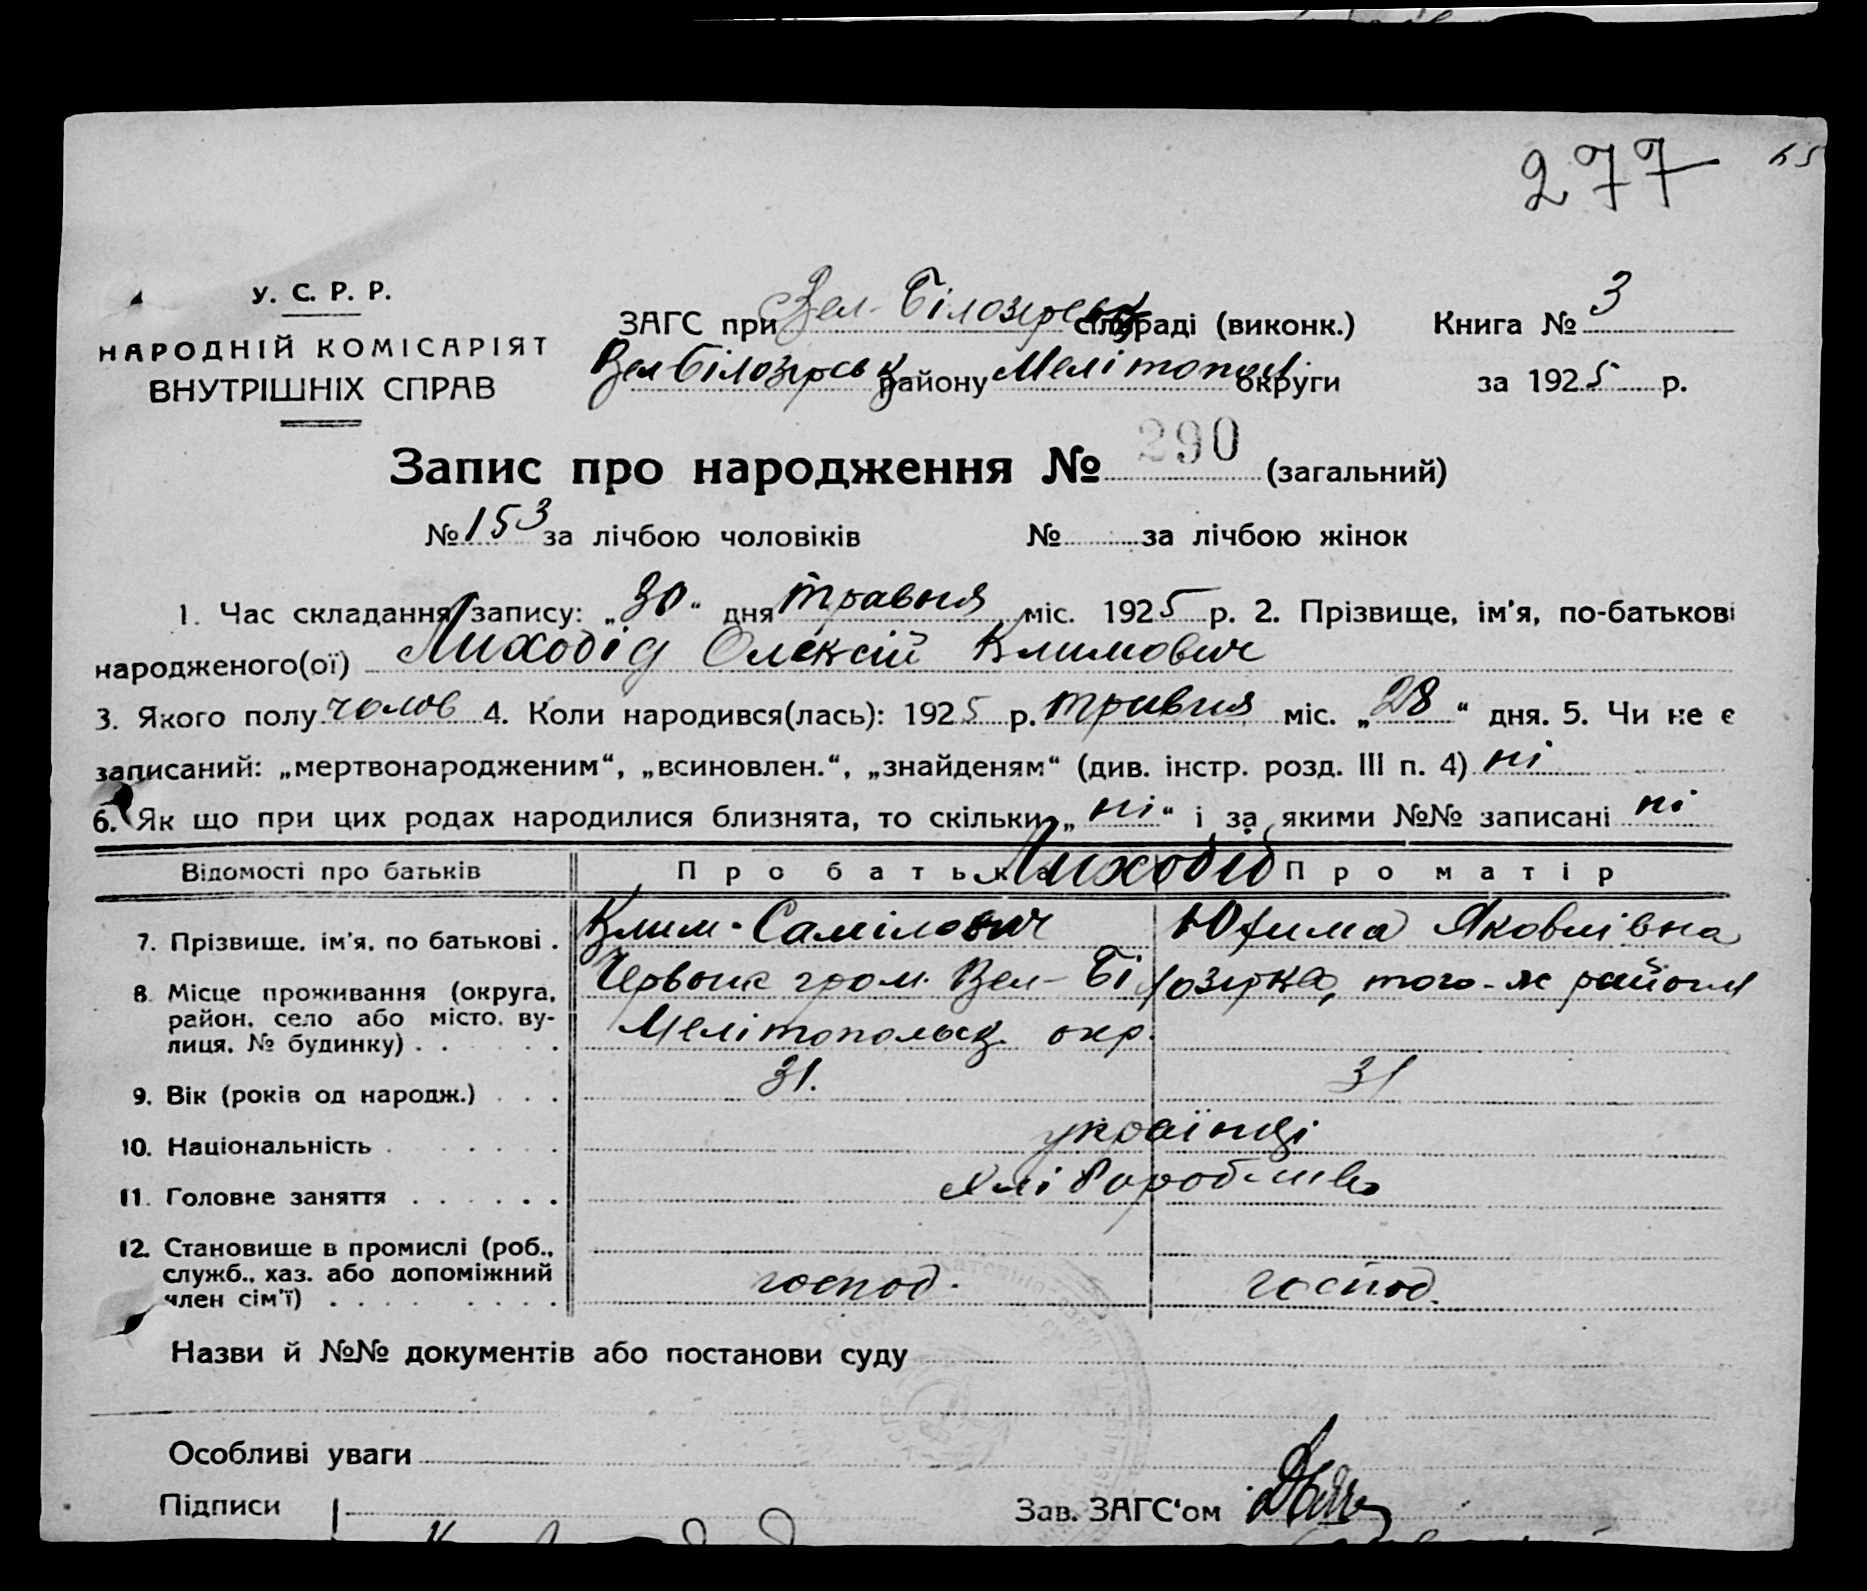 277
У. С. Р. Р.
НАРОДНІЙ КОМІСАРІЯТ
ВНУТРІШНІХ СПРАВ
ЗАГС при Вел-Білозірськ сільраді (виконк.)
Книга № 3
Вел Білозірськ району Мелітопол. округи
за 1925 р.
Запис про народження № 290 (загальний)
№ 153 за лічбою чоловіків № за лічбою жінок
1. Час складання запису: „30“ дня травня міс. 1925 р. 2. Прізвище, ім'я, по-батькові
народженого(ої) Лиходід Олексій Климович
3. Якого полу чолов 4. Коли народився(лась): 1925 р. травня міс. „28“ дня. 5. Чи не є
записаний: „мертвонародженим“, „всиновлен.“, „знайденям“ (див. інстр. розд. III п. 4) ні
6. Як що при цих родах народилися близнята, то скільки „ні“ і за якими №№ записані ні
Відомості про батьків Про батька Лиходід Про матір
7. Прізвище, ім'я, по батькові . Клим-Самілович Юхима Яковлівна
8. Місце проживання (округа, район, село або місто, вулиця, № будинку) . . . . . гром. Вел-Білозірка, того-ж района
Мелітопольськ. окр.
9. Вік (років од народж.) . . . 31. 31
10. Національність . . . . . . . українці
11. Головне заняття . . . . . . хліборобство
12. Становище в промислі (роб.,
служб., хаз. або допоміжний
член сім'ї) . . . . . . . . . господ. господ.
Назви й №№ документів або постанови суду
Особливі уваги
Підписи
Зав. ЗАГС'ом